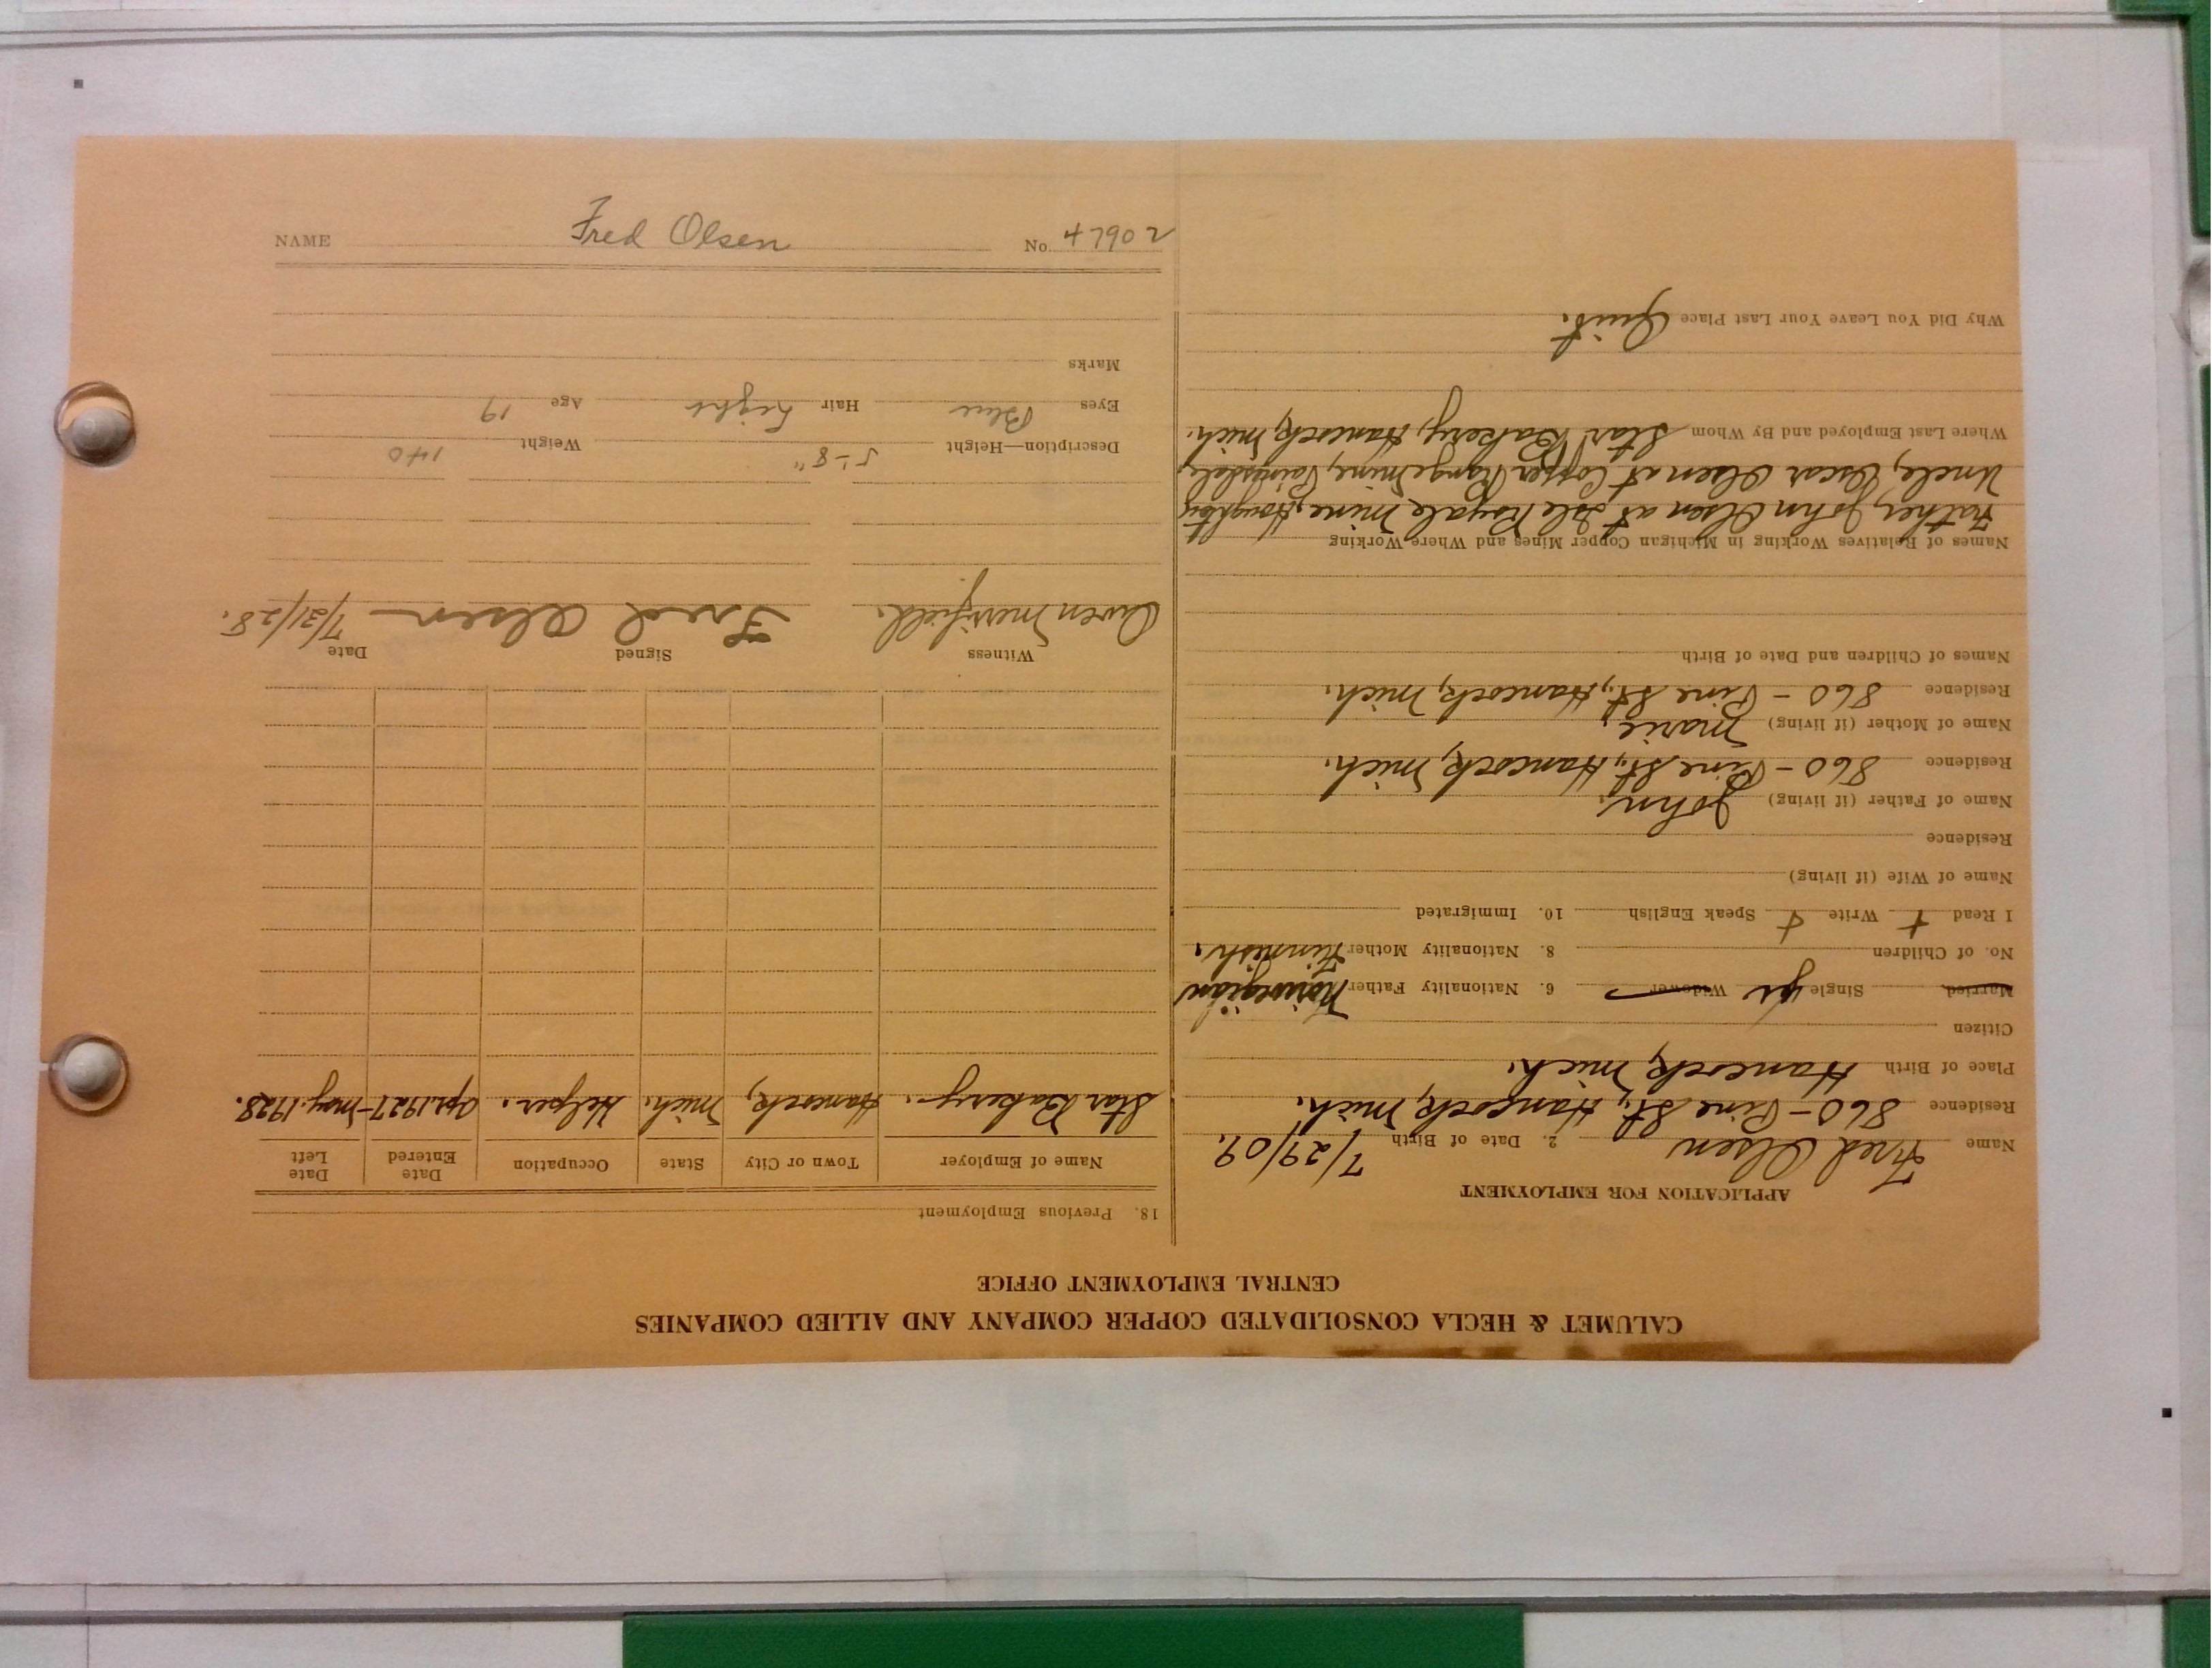 NAME Fred Olsen No. 47902
CALUMET & HECLA CONSOLIDATED COPPER COMPANY AND ALLIED COMPANIES
CENTRAL EMPLOYMENT OFFICE
APPLICATION FOR EMPLOYMENT
Name Fred Olsen 2. Date of Birth 7/29/09.
Residence 860 - Pine St., Hancock, Mich.
Place of Birth Hancock, Mich.
Citizen
Married Single yes Widower 6. Nationality Father Norwegian
No. of Children 8. Nationality Mother Finnish.
I Read + Write + Speak English 10. Immigrated
Name of Wife (if living)
Residence
Name of Father (if living) John.
Residence 860 - Pine St., Hancock, Mich.
Name of Mother (if living) Marie.
Residence 860 - Pine St., Hancock, Mich.
Names of Children and Date of Birth
Names of Relatives Working in Michigan Copper Mines and Where Working
Father, John Olsen at Isle Royale Mine, Houghton
Uncle, Oscar Olsen at Copper Range Mine, Painesdale,
Where Last Employed and By Whom Star Bakery, Hancock, Mich.
Why Did You Leave Your Last Place Quit.
18. Previous Employment
Name of Employer Town or City State Occupation Date Entered Date Left
Star Bakery. Hancock, Mich. Helper. Apr. 1927 - May. 1928.
Witness Signed Date
Owen Merrifield. Fred Olsen 7/31/28.
Description—Height 5'-8" Weight 140
Eyes Blue Hair Light Age 19
Marks